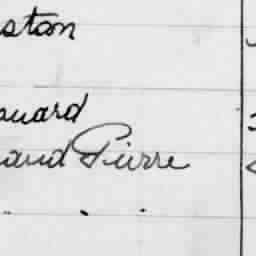 ston
ouard
aud Pierre